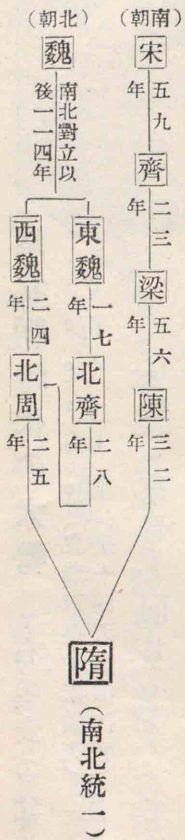 (南朝)
宋
五九年
齊
二三年
梁
五六年
陳
三二年
(北朝)
魏
南北對立以
後一一四年
東魏
一七年
北齊
二八年
西魏
二四年
北周
二五年
隋
(南北統一)